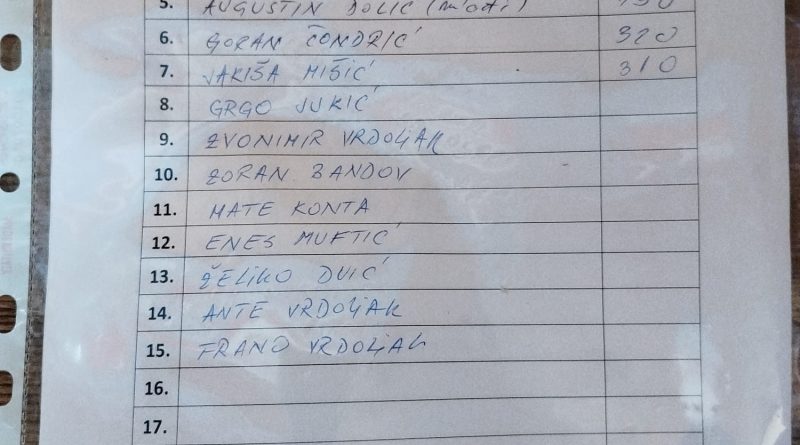 5. AUGUSTIN DOLIĆ (mlađi)
6. GORAN ČONDRIĆ 320
7. JAKIŠA MIŠIĆ 310
8. GRGO JUKIĆ
9. ZVONIMIR VRDOLJAK
10. ZORAN BANDOV
11. MATE KONTA
12. ENES MUFTIĆ
13. ŽELJKO DUIĆ
14. ANTE VRDOLJAK
15. FRANO VRDOLJAK
16.
17.